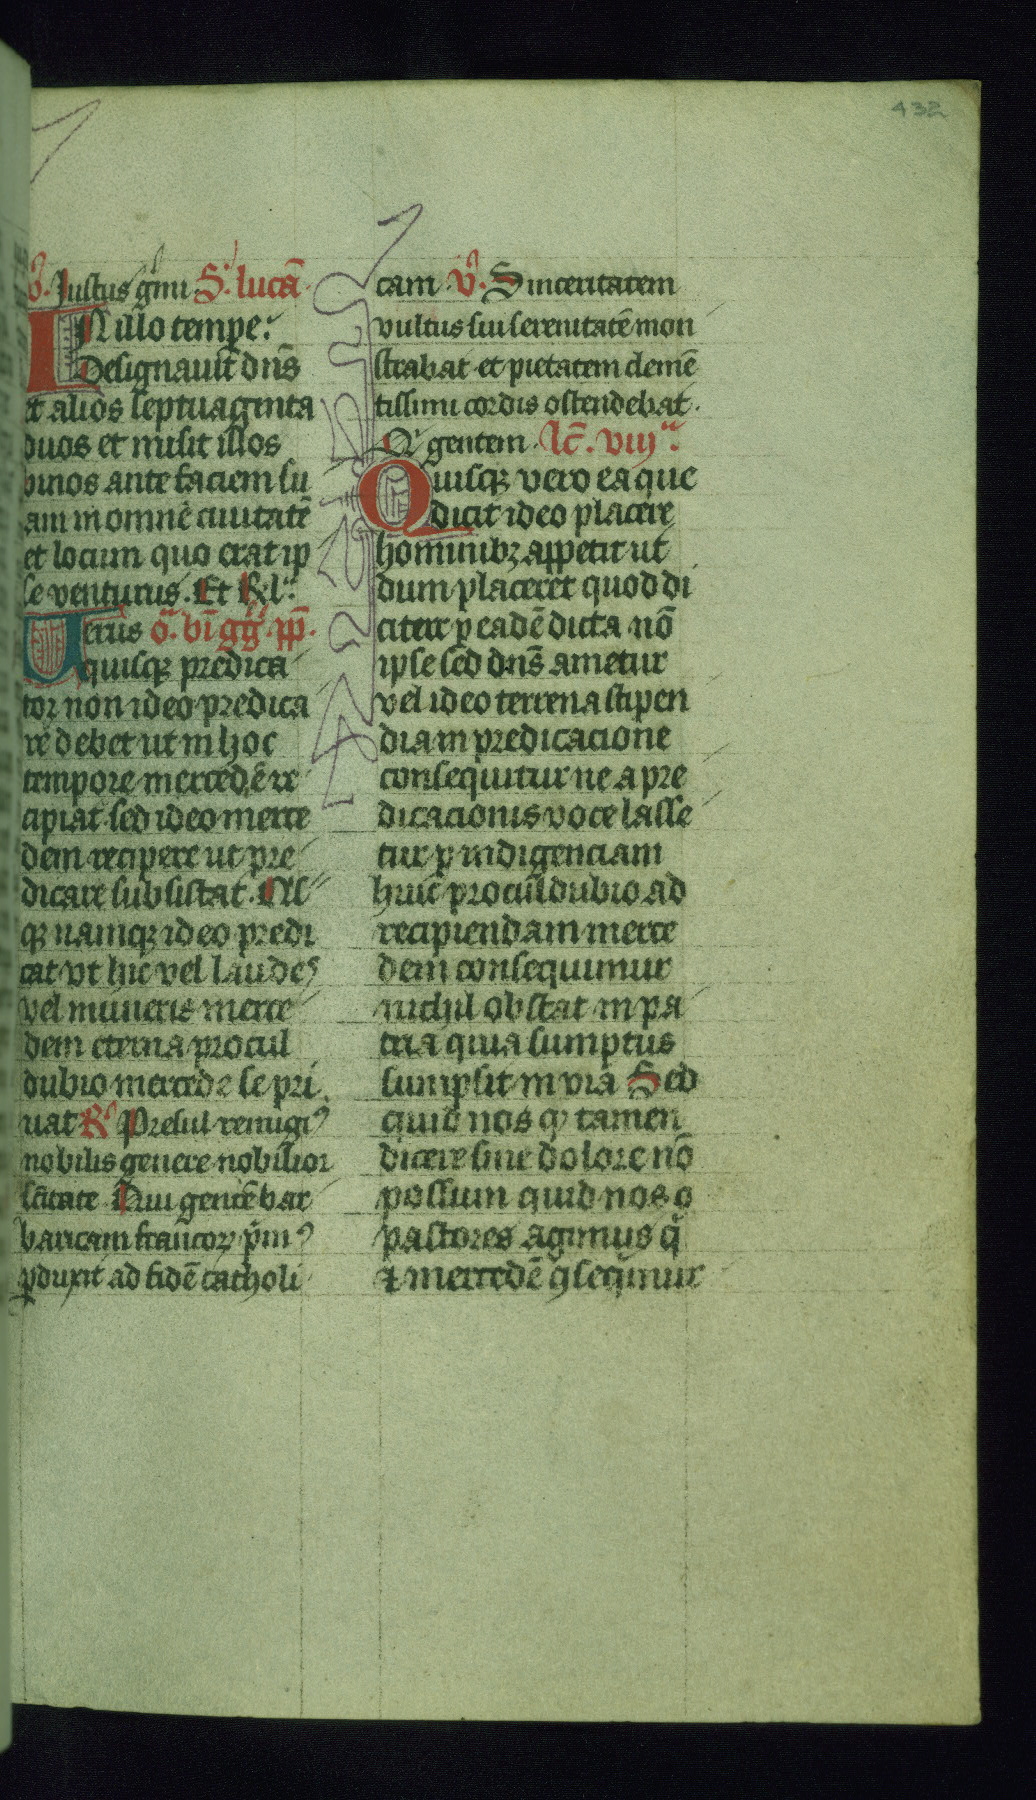 432
v̊. Justus gm̅i S. lucā
In illo tempe.
Designauit dn̄s
et alios septuaginta
duos et misit illos
binos ante faciem su
am in omnē ciuitatē
et locum quo erat ip
se venturus. Et Rel.
Uerus o. bi gg̅ pp̅.
quisqȝ predica
tor non ideo predica
re debet ut in hoc
tempore mercedē re
cipiat sed ideo merce
dem recipere ut pre
dicare subsistat. Nll
qȝ namqȝ ideo predi
cat vt hic vel laudes
vel muneris merce
dem eterna procul
dubio mercede se pri
uat R̊ Presul remigiꝰ
nobilis genere nobilior
sc̄itate Qui gentē bar
baricam francoꝝ pͥmꝰ
ꝑduxit ad fidē catholi
cam v̊. Sinceritatem
vultus sui serenitatē mon
strabat et pietatem clemē
tissimi cordis ostendebat.
Qͥ gentem. lc̄. viijᵃ
Quisqȝ vero ea que
dicit ideo placere
hominibȝ appetit ut
dum placeret quod di
citur ꝑ eadē dicta nō
ipse sed dn̄s ametur
vel ideo terrena stipen
dia in predicacione
consequitur ne a pre
dicacionis voce lasse
tur ꝑ indigenciam
huic procul dubio ad
recipiendam merce
dem consequimur
nichil obstat in pa
tria quia sumptus
sumpsit in via Sed
quid nos qͦ tamen
dicere sine dolore nō
possum quid nos o
pastores agimus qͥ
⁊ mercedē ꝯseqͥmur